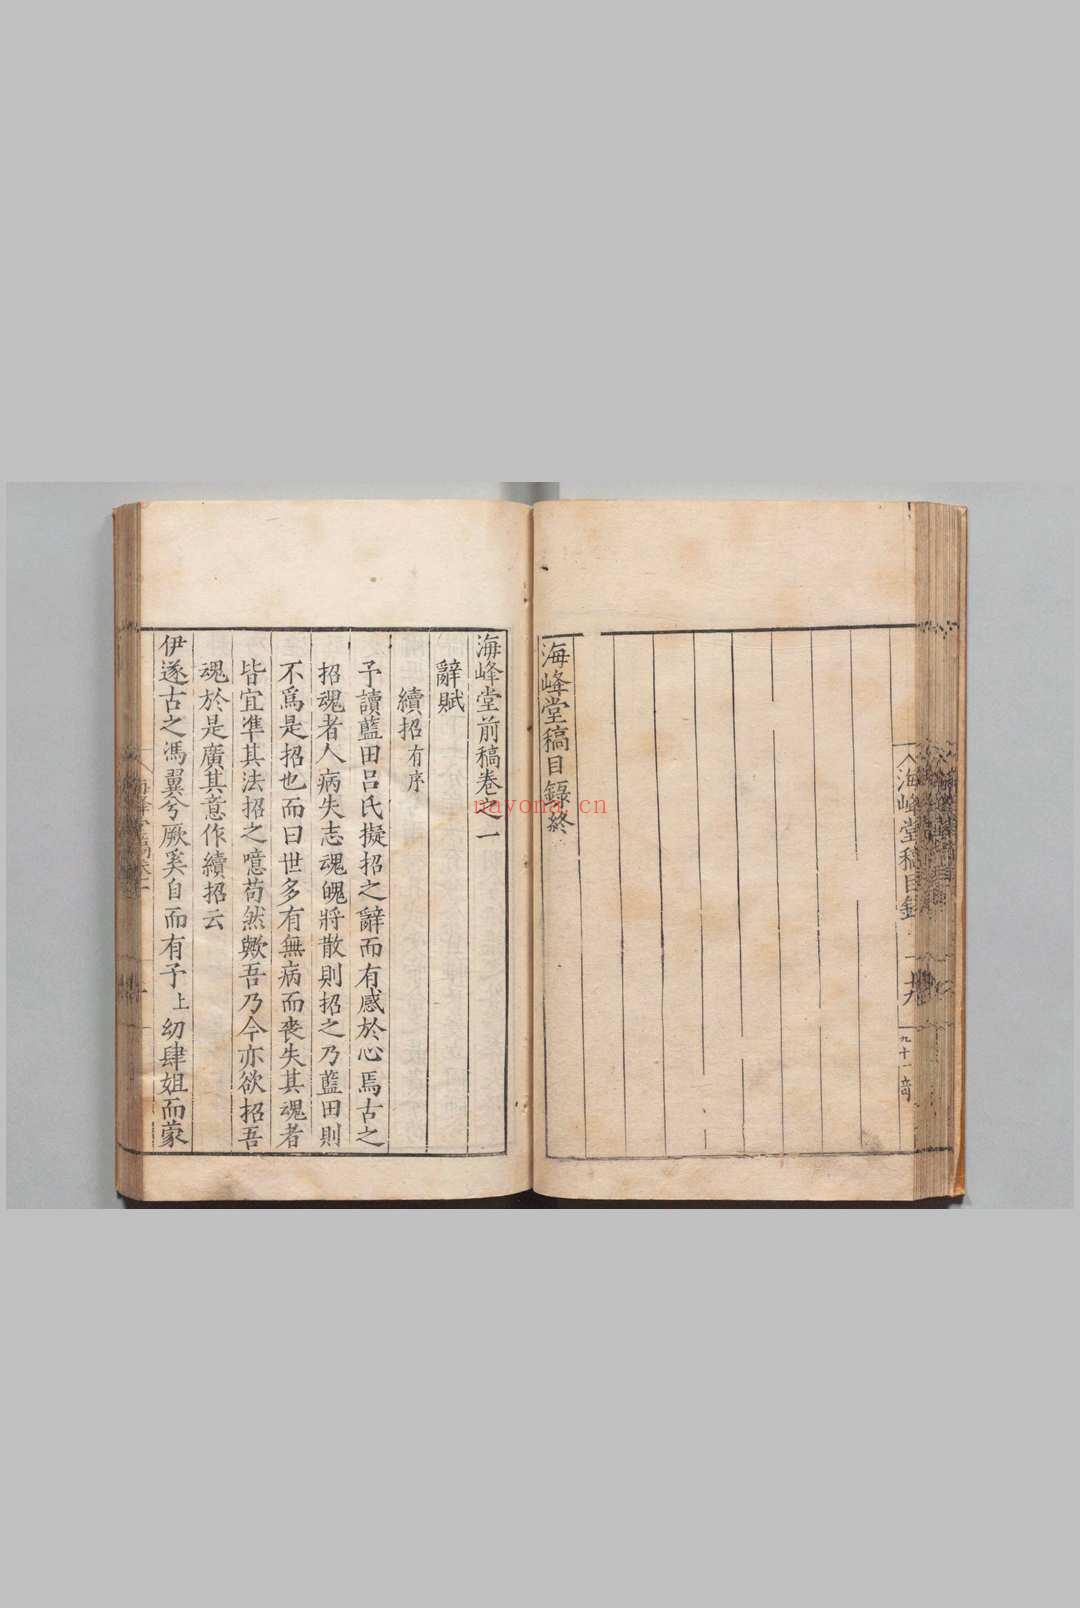 海峰堂稿目錄
十九
海峰堂稿目錄終
海峰堂前稿卷之一
辭賦
續招有序
予讀藍田呂氏擬招之辭而有感於心焉古之
招魂者人病失志魂魄將散則招之乃藍田則
不爲是招也而曰世多有無病而喪失其魂者
皆宜準其法招之噫苟然歟吾乃今亦欲招吾
魂於是廣其意作續招云
伊遂古之馮翼兮厥奚自而有予上幼肆姐而蒙
nayona.cn